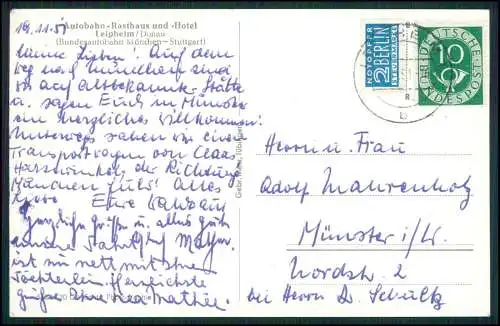 Autobahn-Rasthaus und -Hotel
Leipheim/Donau
(Bundesautobahn München-Stuttgart)
16.11.51
Meine Lieben! Auf dem
Weg nach München sind
wir auf altbekannter Stätte
u. sagen Euch in Münster
ein herzliches Willkommen!
Unterwegs sahen wir einen
Transportwagen von Claas
Harsewinkel, der Richtung
München fuhr! Alles
Eure
Herzliche Grüße u. alles Gute
ist so nett mit
Töchterlein. Herzlichste
Grüße Ihre
NOTOPFER
2 BERLIN
STEUERMARKE
DEUTSCHE
10
BUNDESPOST
Herrn u. Frau
Adolf Mahrenholz
Münster i/W.
Nordstr. 2
bei Herrn Dr. Schultz